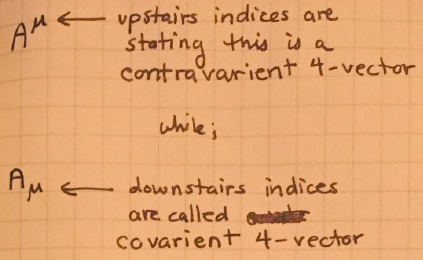 A^μ ← upstairs indices are
stating this is a
contravarient 4-vector
while;
A_μ ← downstairs indices
are called
covarient 4-vector